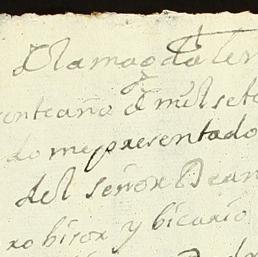 Ella magdalen
ente año de mil sete
do me presentado
del señor Dean
robisor y bicario